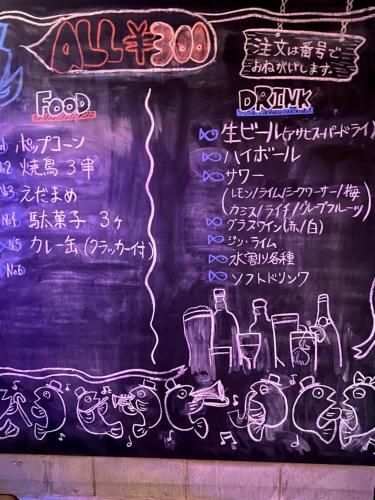 ALL ¥300
注文は番号で
おねがいします。
FOOD
No1 ポップコーン
No2 焼鳥 3串
No3 えだまめ
No4 駄菓子 3ヶ
No5 カレー缶(クラッカー付)
No6
DRINK
生ビール(アサヒスーパードライ)
ハイボール
サワー
(レモン/ライム/シークワーサー/梅
/カシス/ライチ/グレープフルーツ)
グラスワイン(赤/白)
ジン・ライム
水割り各種
ソフトドリンク